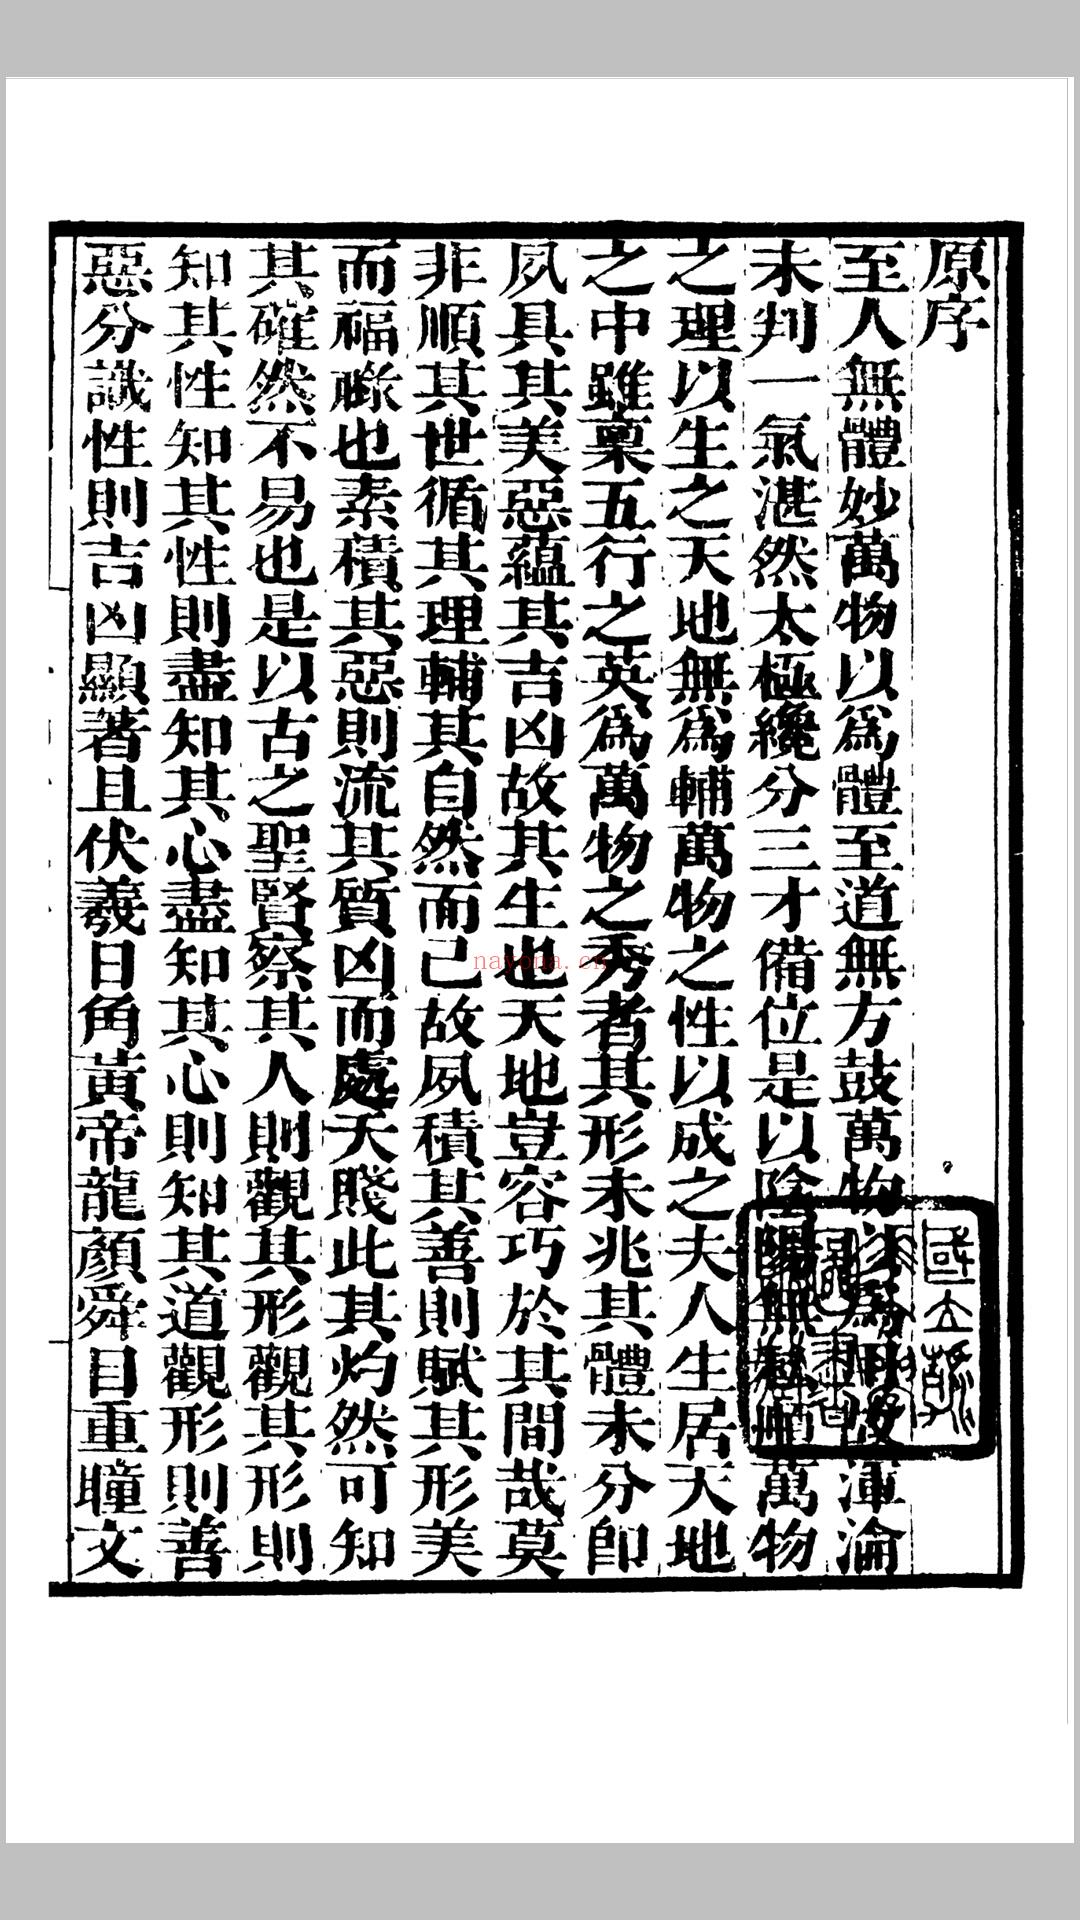 原序
至人無體妙萬物以爲體至道無方鼓萬物以爲用故渾淪
未判一氣湛然太極纔分三才備位是以陰陽無私順萬物
之理以生之天地無爲輔萬物之性以成之夫人生居天地
之中雖稟五行之英爲萬物之秀者其形未兆其體未分即
夙具其美惡蘊其吉凶故其生也天地豈容巧於其間哉莫
非順其世循其理輔其自然而已故夙積其善則賦其形美
而福祿也素積其惡則流其質凶而處夭賤此其灼然可知
其確然不易也是以古之聖賢察其人則觀其形觀其形則
知其性知其性則盡知其心盡知其心則知其道觀形則善
惡分識性則吉凶顯著且伏羲日角黃帝龍顏舜目重瞳文
nayona.cn